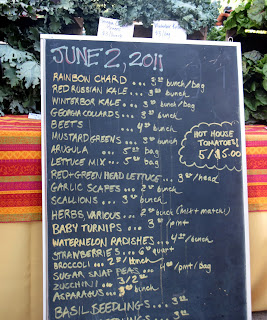 JUNE 2, 2011
RAINBOW CHARD ... 3.00 bunch/bag
RED RUSSIAN KALE ... 3.00 bunch
WINTERBOR KALE ... 3.00 bunch/bag
GEORGIA COLLARDS ... 3.00 bunch
BEETS ... 4.00 bunch
MUSTARD GREENS ... 3.00 bunch
ARUGULA ... bag
LETTUCE MIX ... bag
RED + GREEN HEAD LETTUCE ... 3.00/head
GARLIC SCAPES ... 2.00 bunch
SCALLIONS ... 3.00 bunch
HERBS, VARIOUS ... 2.00 bunch (mix + match!)
BABY TURNIPS ... 3.00/pint
WATERMELON RADISHES ... 4.00/bunch
STRAWBERRIES ... 6.00 quart
BROCCOLI ... bunch
SUGAR SNAP PEAS ... 4.00/pint/bag
ZUCCHINI ... 3/2.00
ASPARAGUS ... bunch
BASIL SEEDLINGS ... 3.00
HOT HOUSE
TOMATOES!
5/$5.00